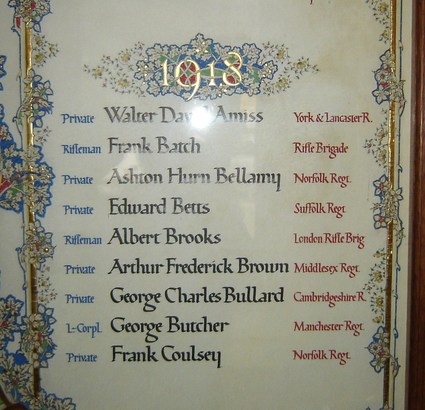 1918
Private Walter David Amiss York & Lancaster R.
Rifleman Frank Batch Rifle Brigade
Private Ashton Hurn Bellamy Norfolk Regt.
Private Edward Betts Suffolk Regt.
Rifleman Albert Brooks London Rifle Brig
Private Arthur Frederick Brown Middlesex Regt.
Private George Charles Bullard Cambridgeshire R.
L-Corpl. George Butcher Manchester Regt.
Private Frank Coulsey Norfolk Regt.